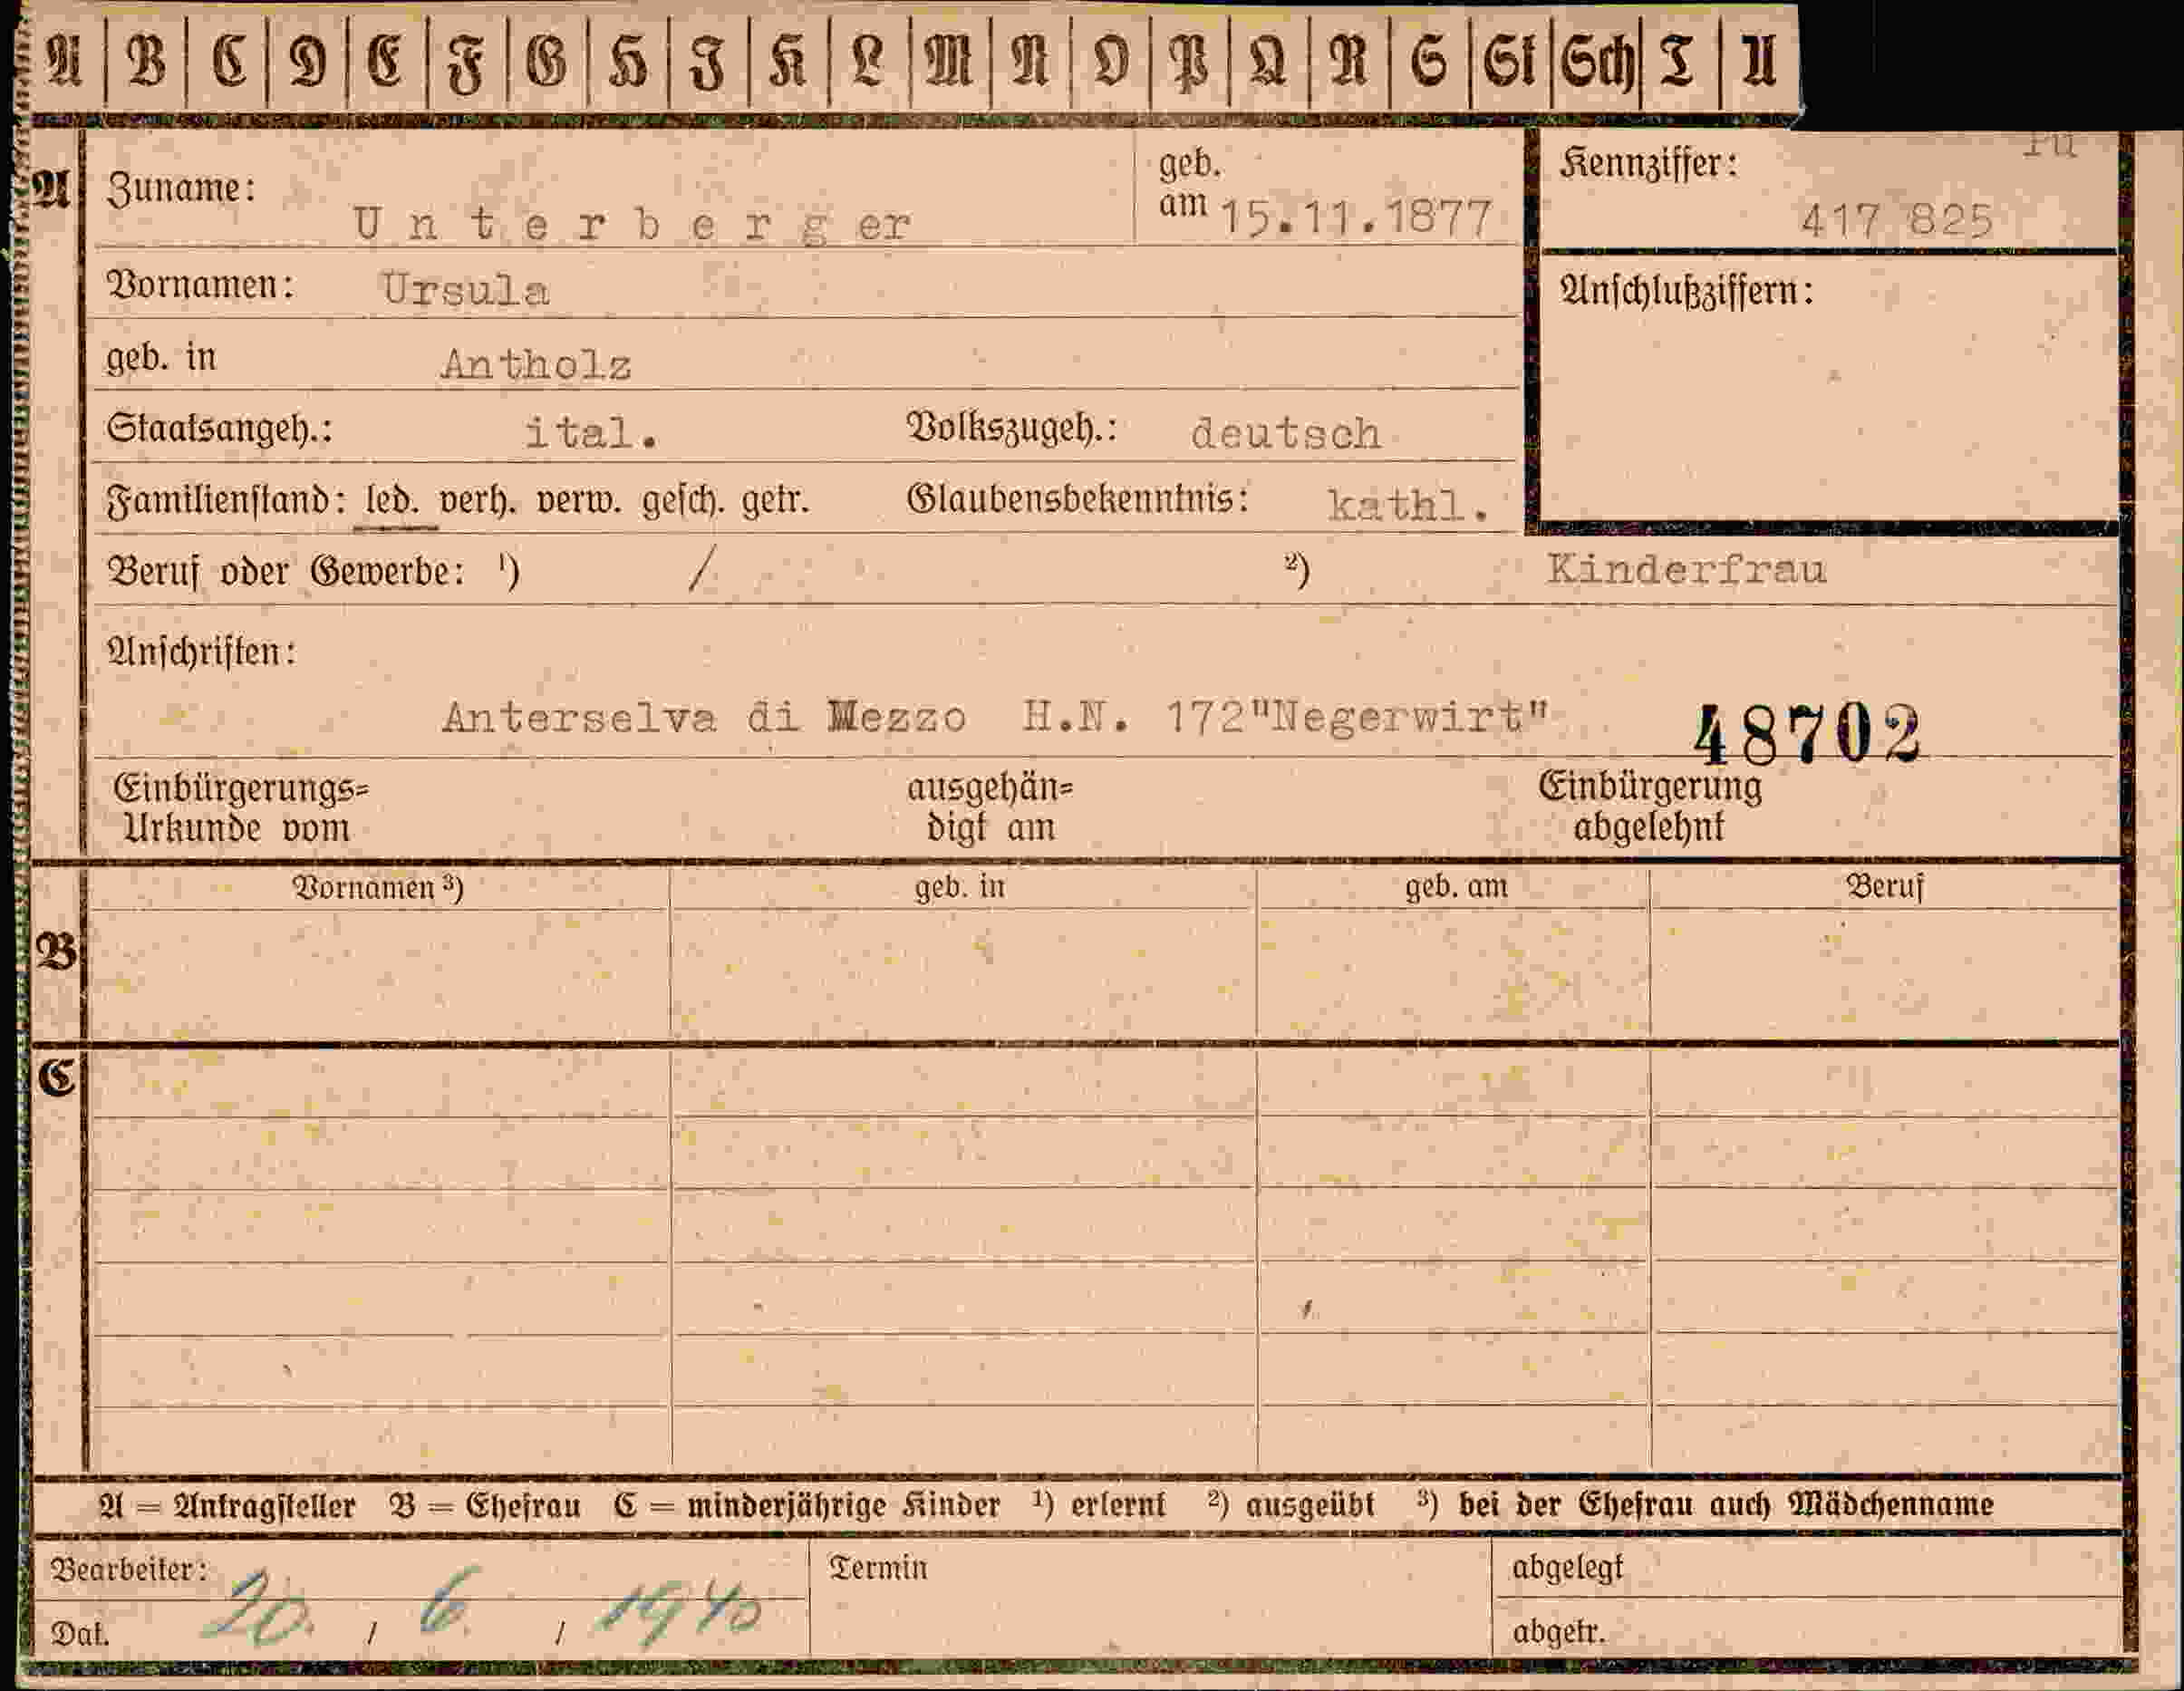 A B C D E F G H I K L M N O P Q R S St Sch T U
A Zuname: Unterberger geb. am 15.11.1877 Kennziffer: 417 825
Vornamen: Ursula Anschlußziffern:
geb. in Antholz
Staatsangeh.: ital. Volkszugeh.: deutsch
Familienstand: led. verh. verw. gesch. getr. Glaubensbekenntnis: kathl.
Beruf oder Gewerbe: ¹) / ²) Kinderfrau
Anschriften:
Anterselva di Mezzo H.N. 172"Negerwirt" 48702
Einbürgerungs= ausgehän= Einbürgerung
Urkunde vom digt am abgelehnt
Vornamen ³) geb. in geb. am Beruf
B
C
A = Antragsteller B = Ehefrau C = minderjährige Kinder ¹) erlernt ²) ausgeübt ³) bei der Ehefrau auch Mädchenname
Bearbeiter: Termin abgelegt
Dat. 20. / 6. / 1940 abgetr.